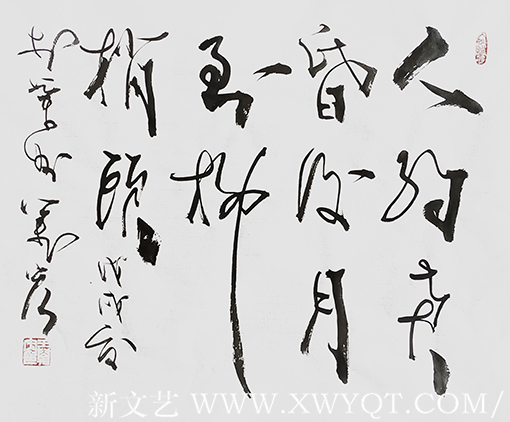 人約黄
昏後月
到柳
梢頭 戊戌
新文艺 WWW.XWYQT.COM/